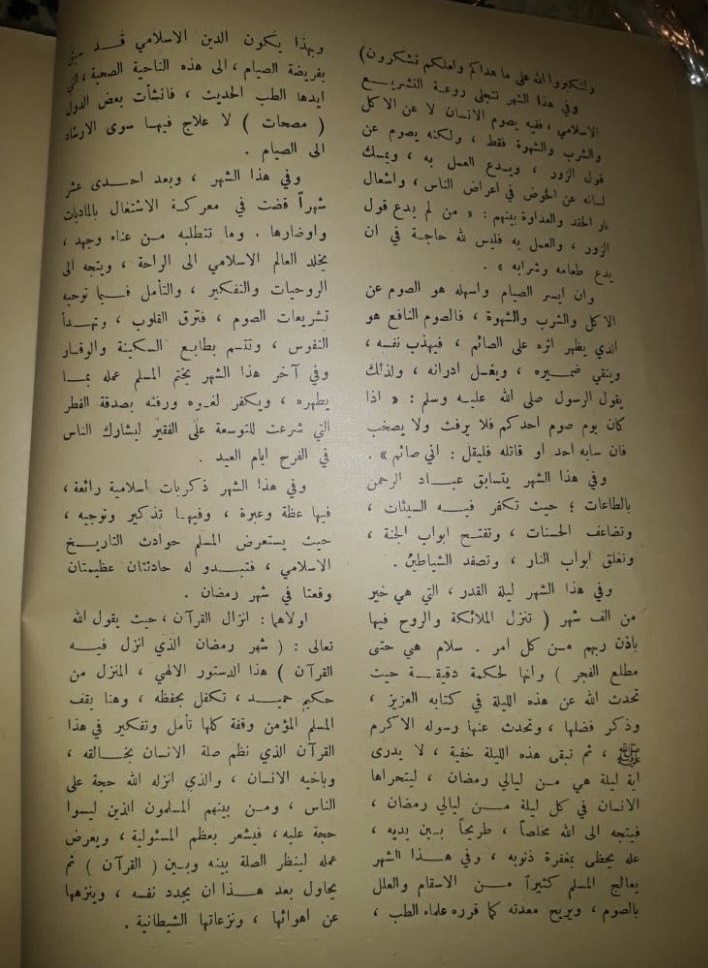 ولتكبروا الله على ما هداكم ولعلكم تشكرون)
وفي هذا الشهر تتجلى روعة التشريع
الاسلامي ، ففيه يصوم الانسان لا عن الاكل
والشرب والشهوة فقط ، ولكنه يصوم عن
قول الزور ، ويدع العمل به ، ويمسك
لسانه عن الخوض في اعراض الناس ، واشعال
نار الحقد والعداوة بينهم : « من لم يدع قول
الزور ، والعمل به فليس لله حاجة في ان
يدع طعامه وشرابه » .
وان ايسر الصيام واسهله هو الصوم عن
الاكل والشرب والشهوة ، فالصوم النافع هو
الذي يظهر اثره على الصائم ، فيهذب نفسه ،
وينقي ضميره ، ويغسل ادرانه ، ولذلك
يقول الرسول صلى الله عليه وسلم : « اذا
كان يوم صوم احدكم فلا يرفث ولا يصخب
فان سابه احد او قاتله فليقل : اني صائم » .
وفي هذا الشهر يتسابق عباد الرحمن
بالطاعات ؛ حيث تكفر فيه السيئات ،
وتضاعف الحسنات ، وتفتح ابواب الجنة ،
وتغلق ابواب النار ، وتصفد الشياطين .
وفي هذا الشهر ليلة القدر ، التي هي خير
من الف شهر ( تنزل الملائكة والروح فيها
باذن ربهم من كل امر . سلام هي حتى
مطلع الفجر ) وانها لحكمة دقيقة حيث
تحدث الله عن هذه الليلة في كتابه العزيز ،
وذكر فضلها ، وتحدث عنها رسوله الاكرم
ﷺ ، ثم تبقى هذه الليلة خفية ، لا يدرى
اية ليلة هي من ليالي رمضان ، ليتحراها
الانسان في كل ليلة من ليالي رمضان ،
فيتجه الى الله مخلصاً ، طريحاً بين يديه ،
عله يحظى بمغفرة ذنوبه ، وفي هذا الشهر
يعالج المسلم كثيراً من الاسقام والعلل
بالصوم ، ويريح معدته كما قرره علماء الطب ،
وبهذا يكون الدين الاسلامي قد سبق
بفريضة الصيام ، الى هذه الناحية الصحية ، التي
ايدها الطب الحديث ، فانشأت بعض الدول
( مصحات ) لا علاج فيها سوى الارشاد
الى الصيام .
وفي هذا الشهر ، وبعد احدى عشر
شهراً قضت في معركة الاشتغال بالماديات
واوضارها . وما تتطلبه من عناء وجهد ،
يخلد العالم الاسلامي الى الراحة ، ويتجه الى
الروحيات والتفكير ، والتأمل فيما توحيه
تشريعات الصوم ، فترق القلوب ، وتهدأ
النفوس ، وتتسم بطابع السكينة والوقار
وفي آخر هذا الشهر يختم المسلم عمله بما
يطهره ، ويكفر لغوه ورفثه بصدقة الفطر
التي شرعت للتوسعة على الفقير ليشارك الناس
في الفرح ايام العيد .
وفي هذا الشهر ذكريات اسلامية رائعة ،
فيها عظة وعبرة ، وفيها تذكير وتوجيه ،
حيث يستعرض المسلم حوادث التاريخ
الاسلامي ، فتبدو له حادثتان عظيمتان
وقعتا في شهر رمضان .
اولاهما : انزال القرآن ، حيث يقول الله
تعالى : ( شهر رمضان الذي انزل فيه
القرآن ) هذا الدستور الالهي ، المنزل من
حكيم حميد ، تكفل بحفظه ، وهنا يقف
المسلم المؤمن وقفة كلها تأمل وتفكير في هذا
القرآن الذي نظم صلة الانسان بخالقه ،
وباخيه الانسان ، والذي انزله الله حجة على
الناس ، ومن بينهم المسلمون الذين ليسوا
حجة عليه ، فيشعر بعظم المسئولية ، ويعرض
عمله لينظر الصلة بينه وبين ( القرآن ) ثم
يحاول بعد هذا ان يجدد نفسه ، وينزهها
عن اهوائها ، ونزعاتها الشيطانية .